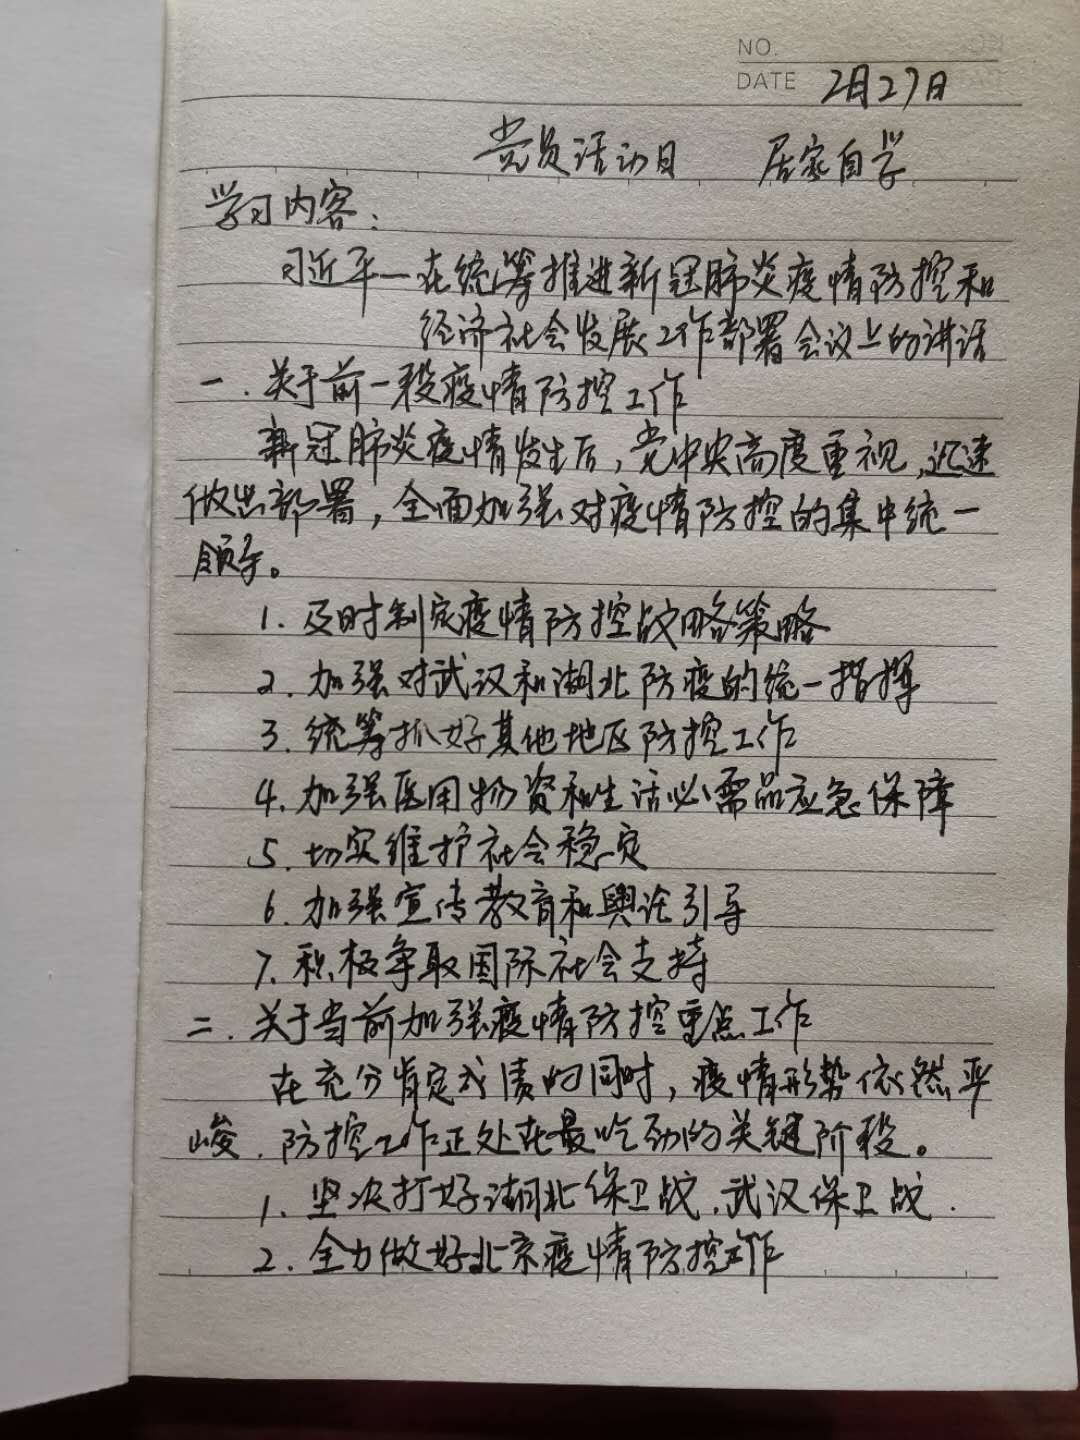 NO.
DATE 2月27日
党员活动日 居家自学
学习内容:
习近平一在统筹推进新冠肺炎疫情防控和
经济社会发展工作部署会议上的讲话
一.关于前一段疫情防控工作
新冠肺炎疫情发生后,党中央高度重视,迅速
做出部署,全面加强对疫情防控的集中统一
领导。
1.及时制定疫情防控战略策略
2.加强对武汉和湖北防疫的统一指挥
3.统筹抓好其他地区防控工作
4.加强医用物资和生活必需品应急保障
5.切实维护社会稳定
6.加强宣传教育和舆论引导
7.积极争取国际社会支持
二.关于当前加强疫情防控重点工作
在充分肯定成绩的同时,疫情形势依然严
峻.防控工作正处在最吃劲的关键阶段。
1.坚决打好湖北保卫战.武汉保卫战.
2.全力做好北京疫情防控工作